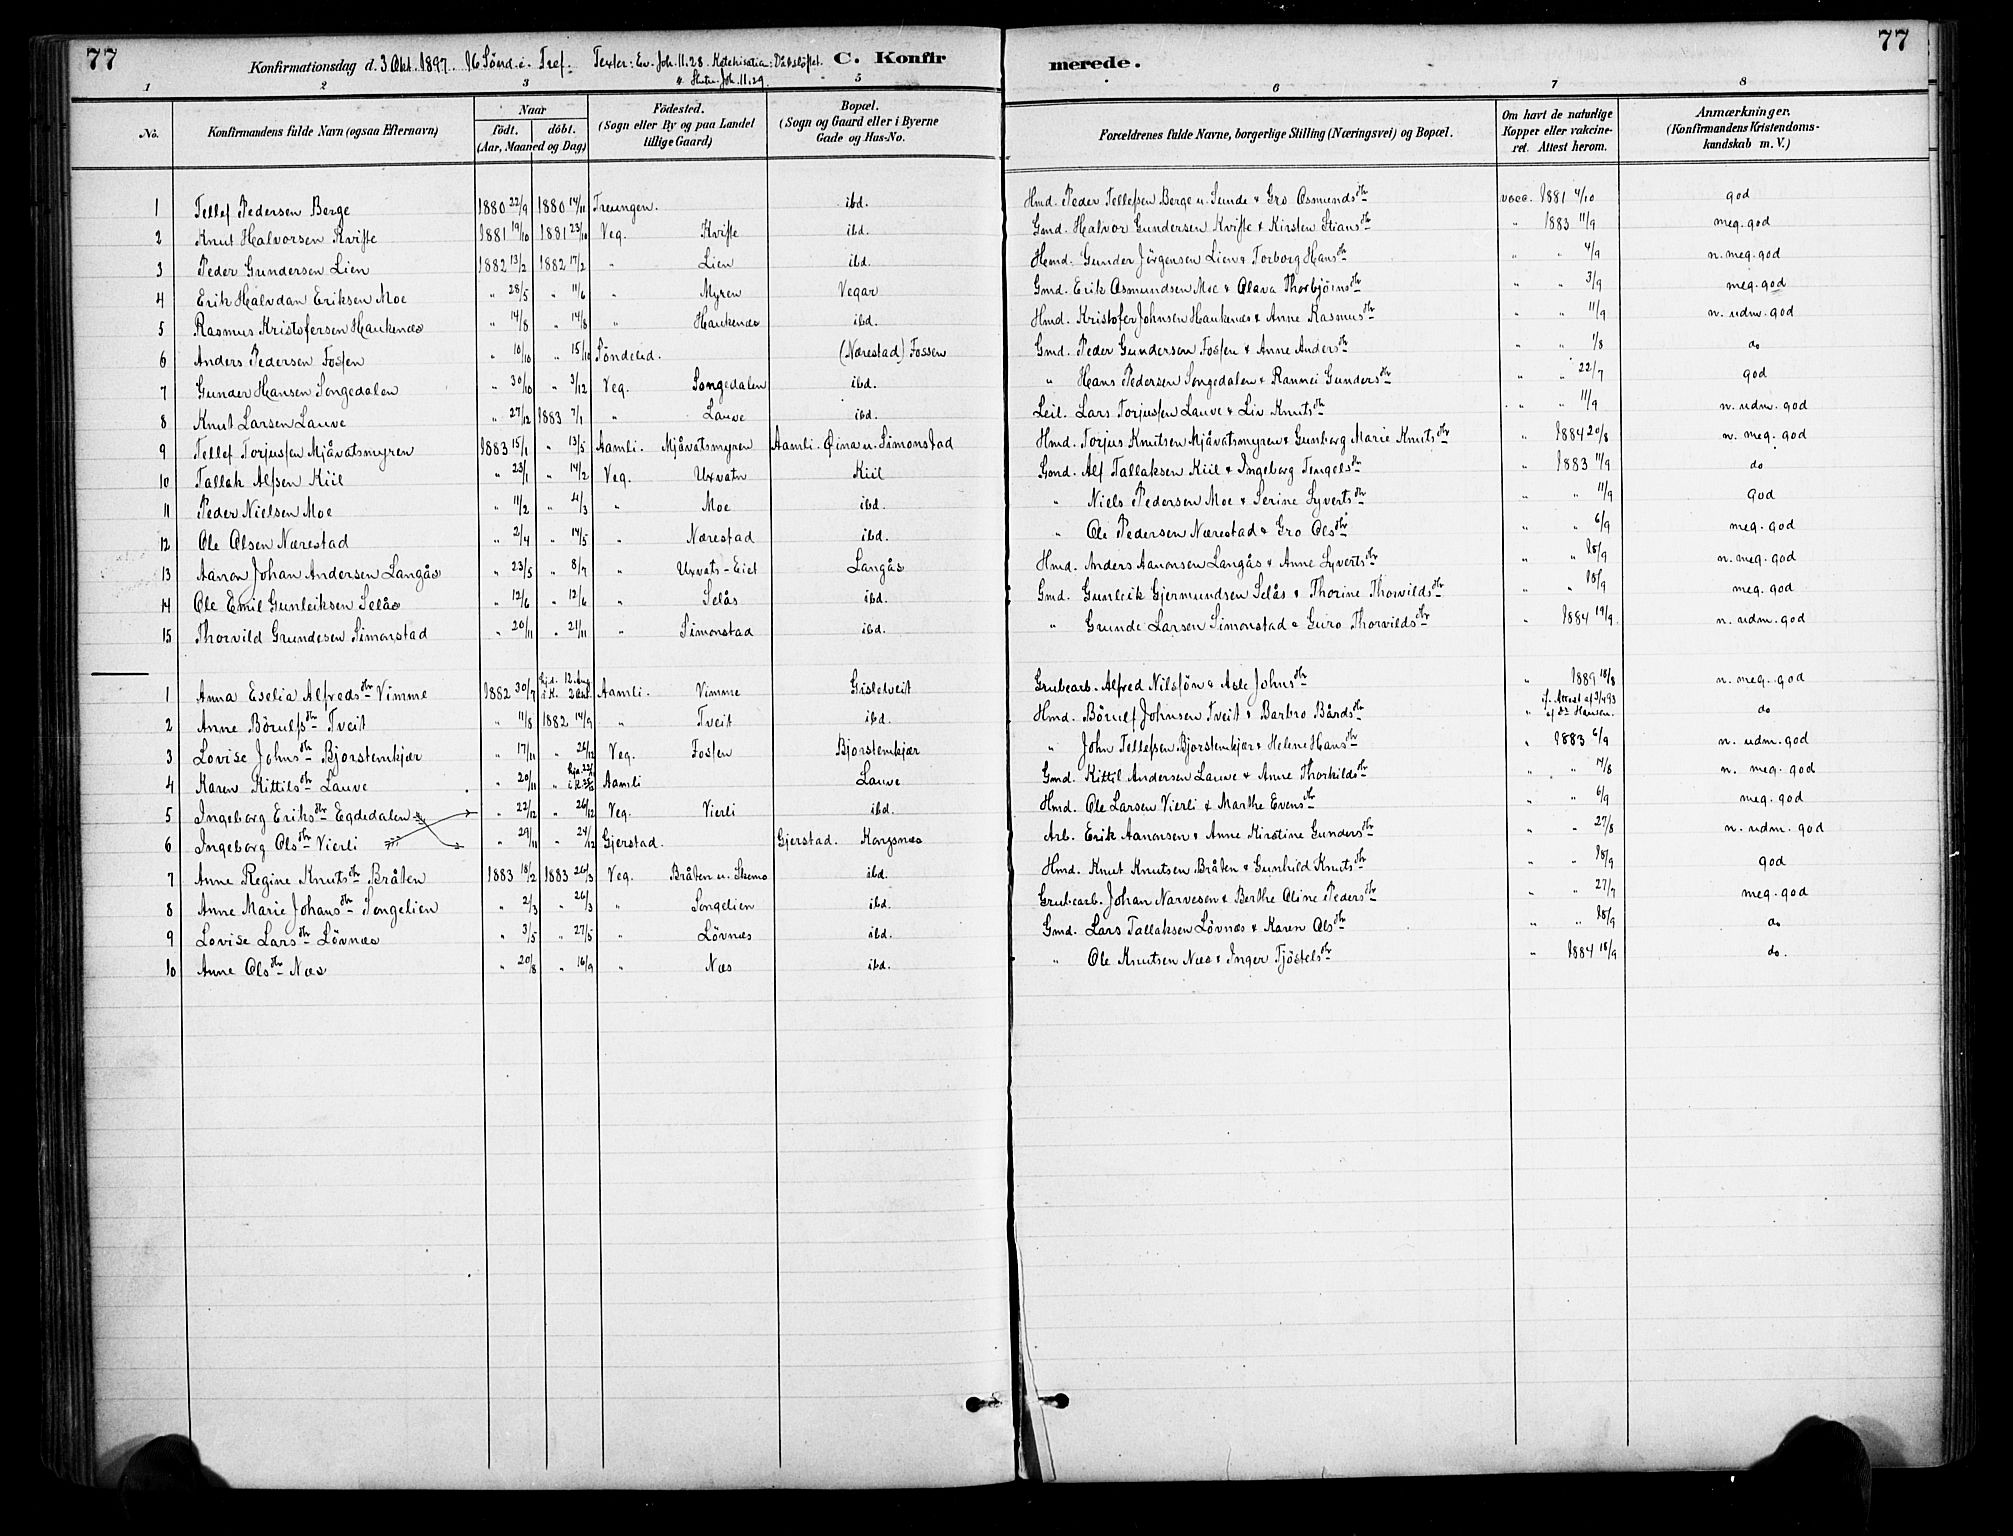 77 Konfirmationsdag d. 3 Okt. 1897. 16 Sönd. e. Tref. Texter: Ev. Joh. 11.28. Katekisation: Dåbsløftet. C. Konfirmerede. 77
Joh. 11.29.
1 2 3 5 6 7 8
No. Konfirmandens fulde Navn (ogsaa Efternavn) Naar födt. döbt. (Aar, Maaned og Dag) Födested. (Sogn eller By og paa Landet tillige Gaard) Bopæl. (Sogn og Gaard eller i Byerne Gade og Hus-No. Forældrenes fulde Navne, borgerlige Stilling (Næringsvei) og Bopæl. Om havt de naturlige Kopper eller vakcineret. Attest herom. Anmærkninger. (Konfirmandens Kristendomskundskab m. V.)
1 Tellef Pedersen Berge 1880 22/9 1880 14/11 Treungen. ibd. Hmd. Peder Tellefsen Berge u. Sunde & Gro Asmundsdtr vacc. 1881 4/10 god
2 Knut Halvorsen Kviste 1881 19/10 1881 23/10 Veg. Kviste ibd. Gmd. Halvor Gundersen Kviste & Kirsten Stiansdtr " 1883 11/9 meg. god
3 Peder Gundersen Lien 1882 13/2 1882 17/2 " Lien ibd. Hmd. Gunder Jörgensen Lien & Torborg Hansdtr " " 4/9 n. meg. god
4 Erik Halvdan Eriksen Moe " 28/5 " 11/6 " Myren Vegar Gmd. Erik Asmundsen Moe & Olava Thorbjörnsdtr " " 3/9 meg. god
5 Rasmus Kristofersen Haukenæs " 14/8 " 14/8 " Haukenæs ibd. Hmd. Kristofer Johnsen Haukenæs & Anne Rasmusdtr " " 11/9 n. udm. god
6 Anders Pedersen Fossen " 10/10 " 15/10 Söndeled. (Nærestad) Fossen Gmd. Peder Gundersen Fossen & Anne Andersdtr " " 1/8 do
7 Gunder Hansen Songedalen " 30/10 " 3/12 Veg. Songedalen ibd. " Hans Pedersen Songedalen & Rannei Gundersdtr " " 22/7 god
8 Knut Larsen Lauve " 27/12 1883 7/1 " Lauve ibd. Leil. Lars Torjussen Lauve & Liv Knutsdtr " " 11/9 n. udm. god
9 Tellef Torjussen Mjåvatsmyren 1883 15/1 " 13/5 Aamli. Mjåvatsmyren Aamli. Øina u. Simonstad Hmd. Torjus Knutsen Mjåvatsmyren & Gunborg Marie Knutsdtr " 1884 20/8 n. meg. god
10 Tallak Alfsen Kiil " 23/1 " 14/2 Veg. Uxvatn Kiil Gmd. Alf Tallaksen Kiil & Ingeborg Tengelsdtr " 1883 11/9 do
11 Peder Nielsen Moe " 11/2 " 4/3 " Moe ibd. " Niels Pedersen Moe & Serine Syvertsdtr " " 11/9 god
12 Ole Olsen Nærestad " 2/4 " 14/5 " Nærestad ibd. " Ole Pedersen Nærestad & Gro Olsdtr " " 6/9 meg. god
13 Aanon Johan Andersen Langås " 23/5 " 8/7 " Uxvats-Eiet Langås Hmd. Anders Aanonsen Langås & Anne Syvertsdtr " " 18/9 n. meg. god
14 Ole Emil Gunleiksen Selås " 12/6 " 12/6 " Selås ibd. Gmd. Gunleik Gjermundsen Selås & Thorine Thorvildsdtr " " 18/9 meg. god
15 Thorvild Grundesen Simonstad " 20/11 " 21/11 " Simonstad ibd. " Grunde Larsen Simonstad & Guro Thorvildsdtr " 1884 19/9 n. udm. god
1 Anna Eselia Alfredsdtr Vimme 1882 30/7 hjd. 12. Aug. i K. 2 Okt. Aamli. Vimme Gisletveit Grubearb. Alfred Nilsfön & Asle Johnsdtr " 1889 18/8 n. meg. god
2 Anne Börulfsdtr Tveit " 11/8 1882 14/9 " Tveit ibd. Hmd. Börulf Johnsen Tveit & Barbro Bårdsdtr " if. Attest af 3/4 93 af Dr Hansen. do
3 Lovise Johnsdtr Bjorstemkjær " 17/11 " 26/12 Veg. Fossen Bjorstemkjær " John Tellefsen Bjorstemkjær & Helene Hansdtr " 1883 6/9 n. udm. god
4 Karen Kittilsdtr Lauve " 20/11 Aamli Lauve Gmd. Kittil Andersen Lauve & Anne Thorkildsdtr " " 14/8 n. meg. god
5 Ingeborg Eriksdtr Egdedalen " 22/12 " 26/12 Veg. Vierli ibd. Hmd. Ole Larsen Vierli & Marthe Evensdtr " " 6/9 meg. god
6 Ingeborg Olsdtr Vierli " 29/11 " 24/12 Gjerstad. Gjerstad. Korysnæs Arb. Erik Aanonsen & Anne Kirstine Gundersdtr " " 27/8 n. udm. god
7 Anne Regine Knutsdtr Bråten 1883 18/2 1883 26/3 Veg. Bråten u. Skomo ibd. Hmd. Knut Knutsen Bråten & Gunhild Knutsdtr " " 18/9 god
8 Anne Marie Johansdtr Songelien " 2/3 " 26/3 " Songelien ibd. Grubearb. Johan Narvesen & Berthe Oline Pedersdtr " " 27/7 meg. god
9 Lovise Larsdtr Lövnæs " 3/5 " 27/5 " Lövnæs ibd. Gmd. Lars Tallaksen Lövnæs & Karen Olsdtr " " 18/9 do
10 Anne Olsdtr Næs " 20/8 " 16/9 " Næs ibd. " Ole Knutsen Næs & Inger Tjöstelsdtr " 1884 18/9 do.